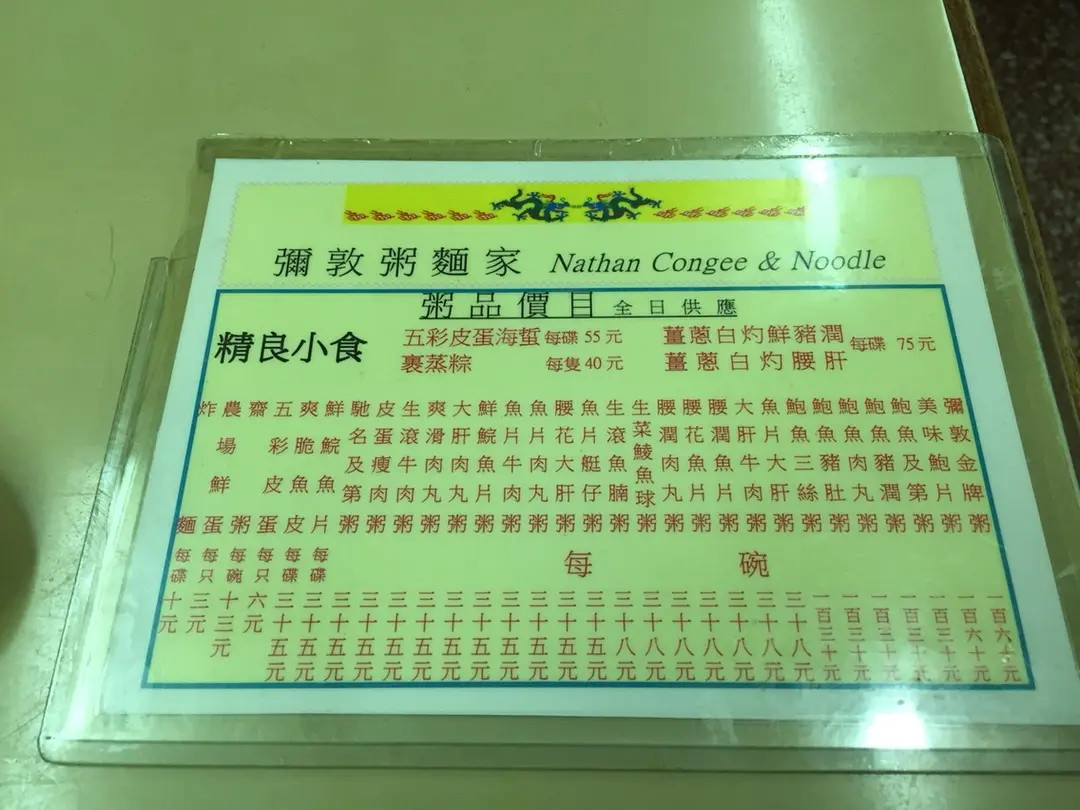 彌敦粥麵家 Nathan Congee & Noodle
粥品價目 全日供應
精良小食
五彩皮蛋海蜇 每碟 55 元
裹蒸粽 每隻 40 元
薑蔥白灼鮮豬潤
薑蔥白灼腰肝
每碟 75 元
彌敦金牌粥
美味鮑片粥
鮑魚及第粥
鮑魚豬潤粥
鮑魚肉丸粥
鮑魚豬肚粥
鮑魚三絲粥
魚片大肝粥
大肝牛肉粥
腰潤魚片粥
腰花魚片粥
腰潤肉丸粥
生菜鯪魚球粥
生滾魚腩粥
魚片艇仔粥
腰花大肝粥
魚片肉丸粥
魚片牛肉粥
鮮鯇魚片粥
大肝肉丸粥
爽滑肉丸粥
生滾牛肉粥
皮蛋瘦肉粥
馳名及第粥
鮮鯇魚片
爽脆魚皮
五彩皮蛋
齋粥
農場鮮蛋
炸麵
每碗
每碟
每碟
每只
每碗
每只
每碟
一百六十元
一百六十元
一百三十元
一百三十元
一百三十元
一百三十元
一百三十元
三十八元
三十八元
三十八元
三十八元
三十八元
三十八元
三十八元
三十五元
三十五元
三十五元
三十五元
三十五元
三十五元
三十五元
三十五元
三十五元
三十五元
三十五元
三十五元
六元
十三元
三元
十元